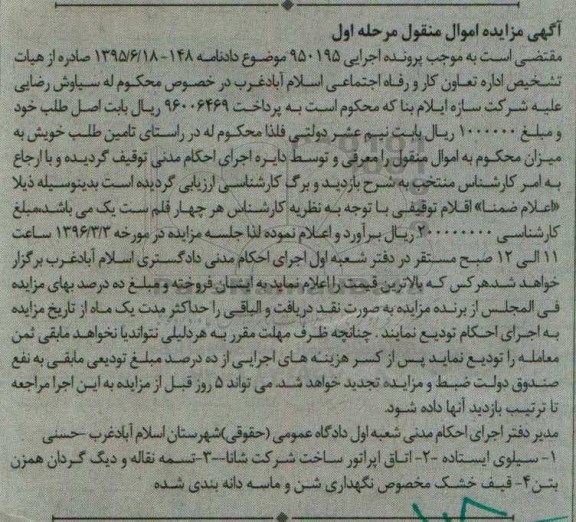 آگهی مزایده اموال منقول مرحله اول
مقتضی است به موجب پرونده اجرایی ۹۵۰۱۹۵ موضوع دادنامه ۱۴۸-۱۳۹۵/۶/۱۸ صادره از هیات
تشخیص اداره تعاون کار و رفاه اجتماعی اسلام آبادغرب در خصوص محکوم له سیاوش رضایی
علیه شرکت سازه ایلام بنا که محکوم است به پرداخت ۹۶۰۰۶۴۶۹ ریال بابت اصل طلب خود
و مبلغ ۱۰۰۰۰۰۰ ریال بابت نیم عشر دولتی فلذا محکوم له در راستای تامین طلب خویش به
میزان محکوم به اموال منقول را معرفی و توسط دایره اجرای احکام مدنی توقیف گردیده و با ارجاع
به امر کارشناس منتخب به شرح بازدید و برگ کارشناسی ارزیابی گردیده است بدینوسیله ذیلا
«اعلام ضمنا» اقلام توقیفی با توجه به نظریه کارشناس هر چهار قلم ست یک می باشد.مبلغ
کارشناسی ۲۰۰۰۰۰۰۰۰ ریال برآورد و اعلام نموده لذا جلسه مزایده در مورخه ۱۳۹۶/۳/۳ ساعت
۱۱ الی ۱۲ صبح مستقر در دفتر شعبه اول اجرای احکام مدنی دادگستری اسلام آبادغرب برگزار
خواهد شد.هرکس که بالاترین قیمت را اعلام نماید به ایشان فروخته و مبلغ ده درصد بهای مزایده
فی المجلس از برنده مزایده به صورت نقد دریافت و الباقی را حداکثر مدت یک ماه از تاریخ مزایده
به اجرای احکام تودیع نمایند . چنانچه ظرف مهلت مقرر به هردلیلی نتواندیا نخواهد مابقی ثمن
معامله را تودیع نماید پس از کسر هزینه های اجرایی از ده درصد مبلغ تودیعی مابقی به نفع
صندوق دولت ضبط و مزایده تجدید خواهد شد. می تواند ۵ روز قبل از مزایده به این اجرا مراجعه
تا ترتیب بازدید آنها داده شود.
مدیر دفتر اجرای احکام مدنی شعبه اول دادگاه عمومی (حقوقی)شهرستان اسلام آبادغرب -حسنی
۱- سیلوی ایستاده -۲- اتاق اپراتور ساخت شرکت شانا-۳-تسمه نقاله و دیگ گردان همزن
بتن۴- قیف خشک مخصوص نگهداری شن و ماسه دانه بندی شده